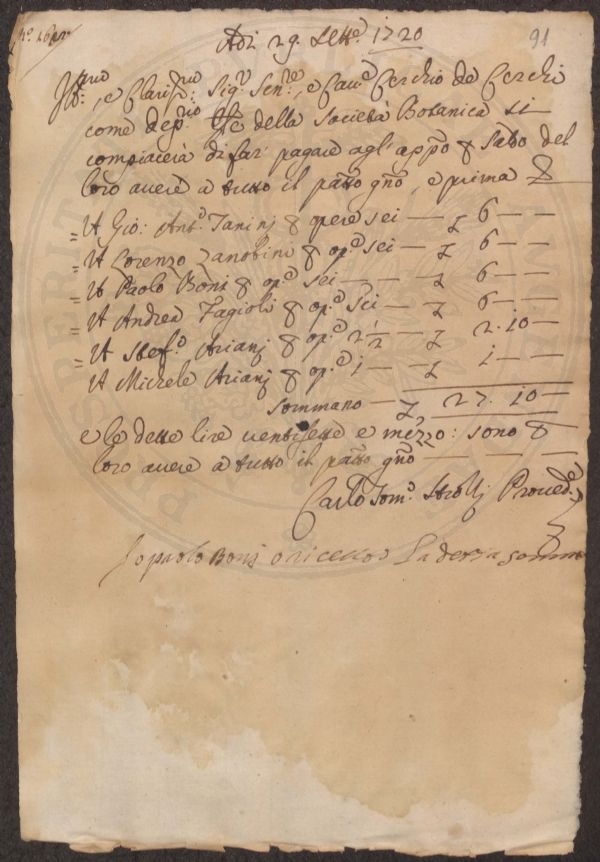 Adi 29. Sett.e 1720
91
Ill.mo, e Claris.mo: Sig.r Sen.re, e Cau.e Cerchio de Cerchi
come dep.rio della Società Botanica si
compiacerà di far pagare agl'app.o saldo del
loro auere a tutto il pas.to gno, e prima
A Gio: Ant.o Taninj opere sei — 6 — —
A Lorenzo Zanobini op.e sei — 6 — —
A Paolo Boni op.e sei — — 6 — —
A Andrea Fagioli op.e sei — 6 — —
A Stef.o Arianj op.e 2 1/2 — 2. 10 —
A Michele Arianj op.e 1 — 1 — —
Sommano — 27. 10 —
e le dette lire uentisette e mezzo: sono
loro auere a tutto il pas.to gno — — — —
Carlo Tom.o Strozzj Proued.e
Io paolo Boni o riceuuto La detta somma